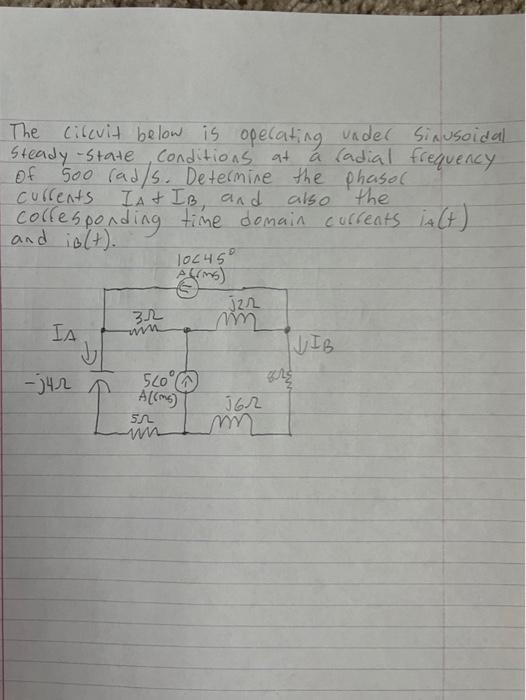 The circuit below is operating under Sinusoidal
Steady-state conditions at a radial frequency
of 500 rad/s. Determine the phasor
currents IA + IB, and also the
corresponding time domain currents iA(t)
and iB(t).
10∠45°
A(rms)
3Ω
j2Ω
IA
IB
-j4Ω
5∠0°
A(rms)
8Ω
5Ω
j6Ω